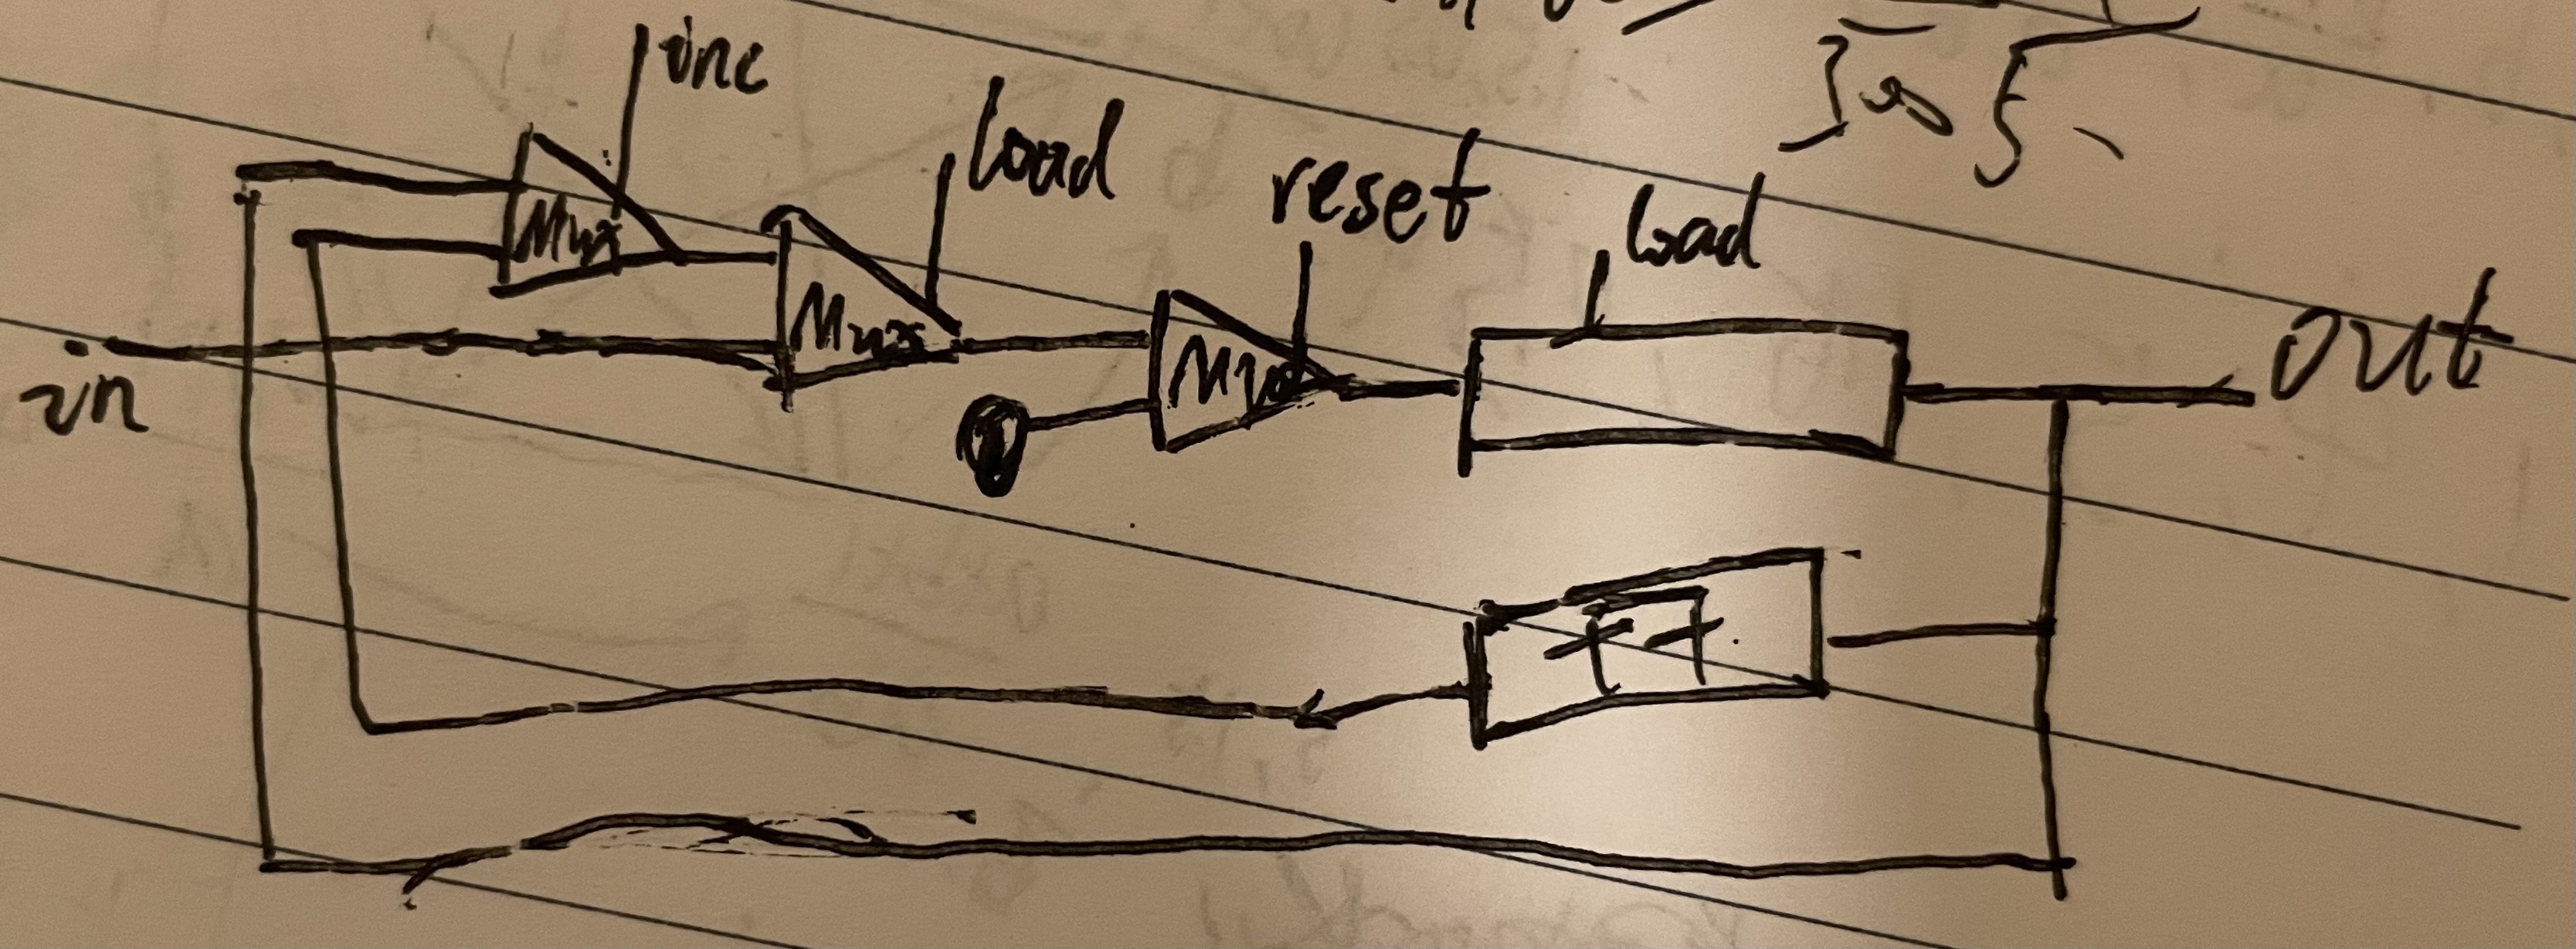 inc
load
reset
load
Mux
Mux
Mux
in
out
++